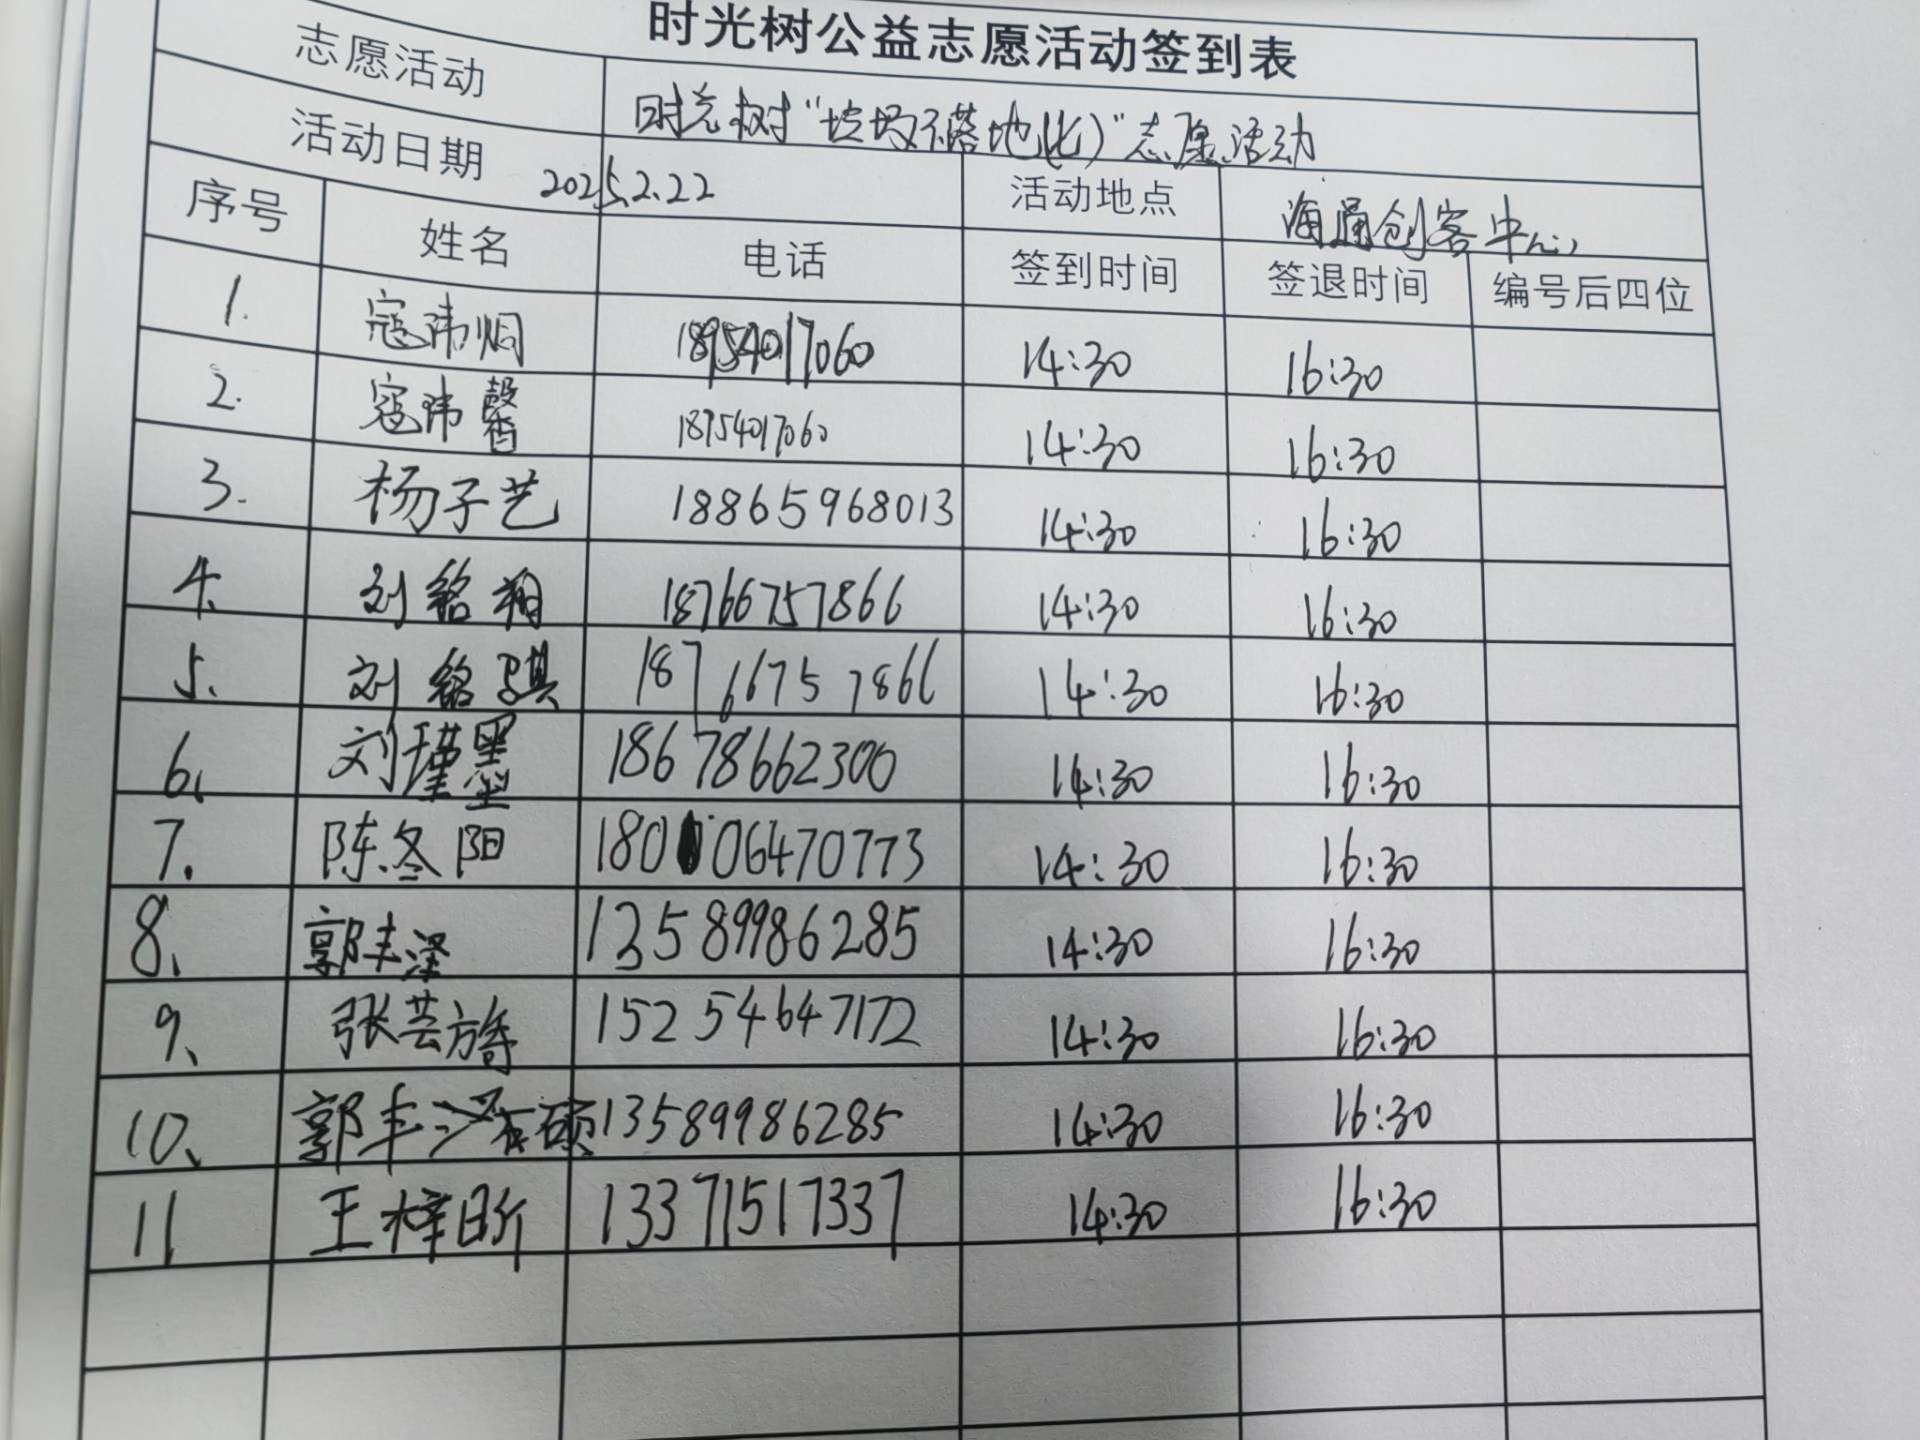 时光树公益志愿活动签到表
志愿活动 时光树“垃圾不落地(七)”志愿活动
活动日期 2025.2.22 活动地点 海通创客中心
序号 姓名 电话 签到时间 签退时间 编号后四位
1. 寇玮炯 18954017060 14:30 16:30
2. 寇玮馨 18954017060 14:30 16:30
3. 杨子艺 18865968013 14:30 16:30
4. 刘铭翔 18766757866 14:30 16:30
5. 刘铭骐 18766757866 14:30 16:30
6、 刘瑾墨 18678662300 14:30 16:30
7. 陈冬阳 18006470773 14:30 16:30
8、 郭丰泽 13589986285 14:30 16:30
9、 张芸旖 15254647172 14:30 16:30
10、 郭丰硕 13589986285 14:30 16:30
11 王梓昕 13371517337 14:30 16:30